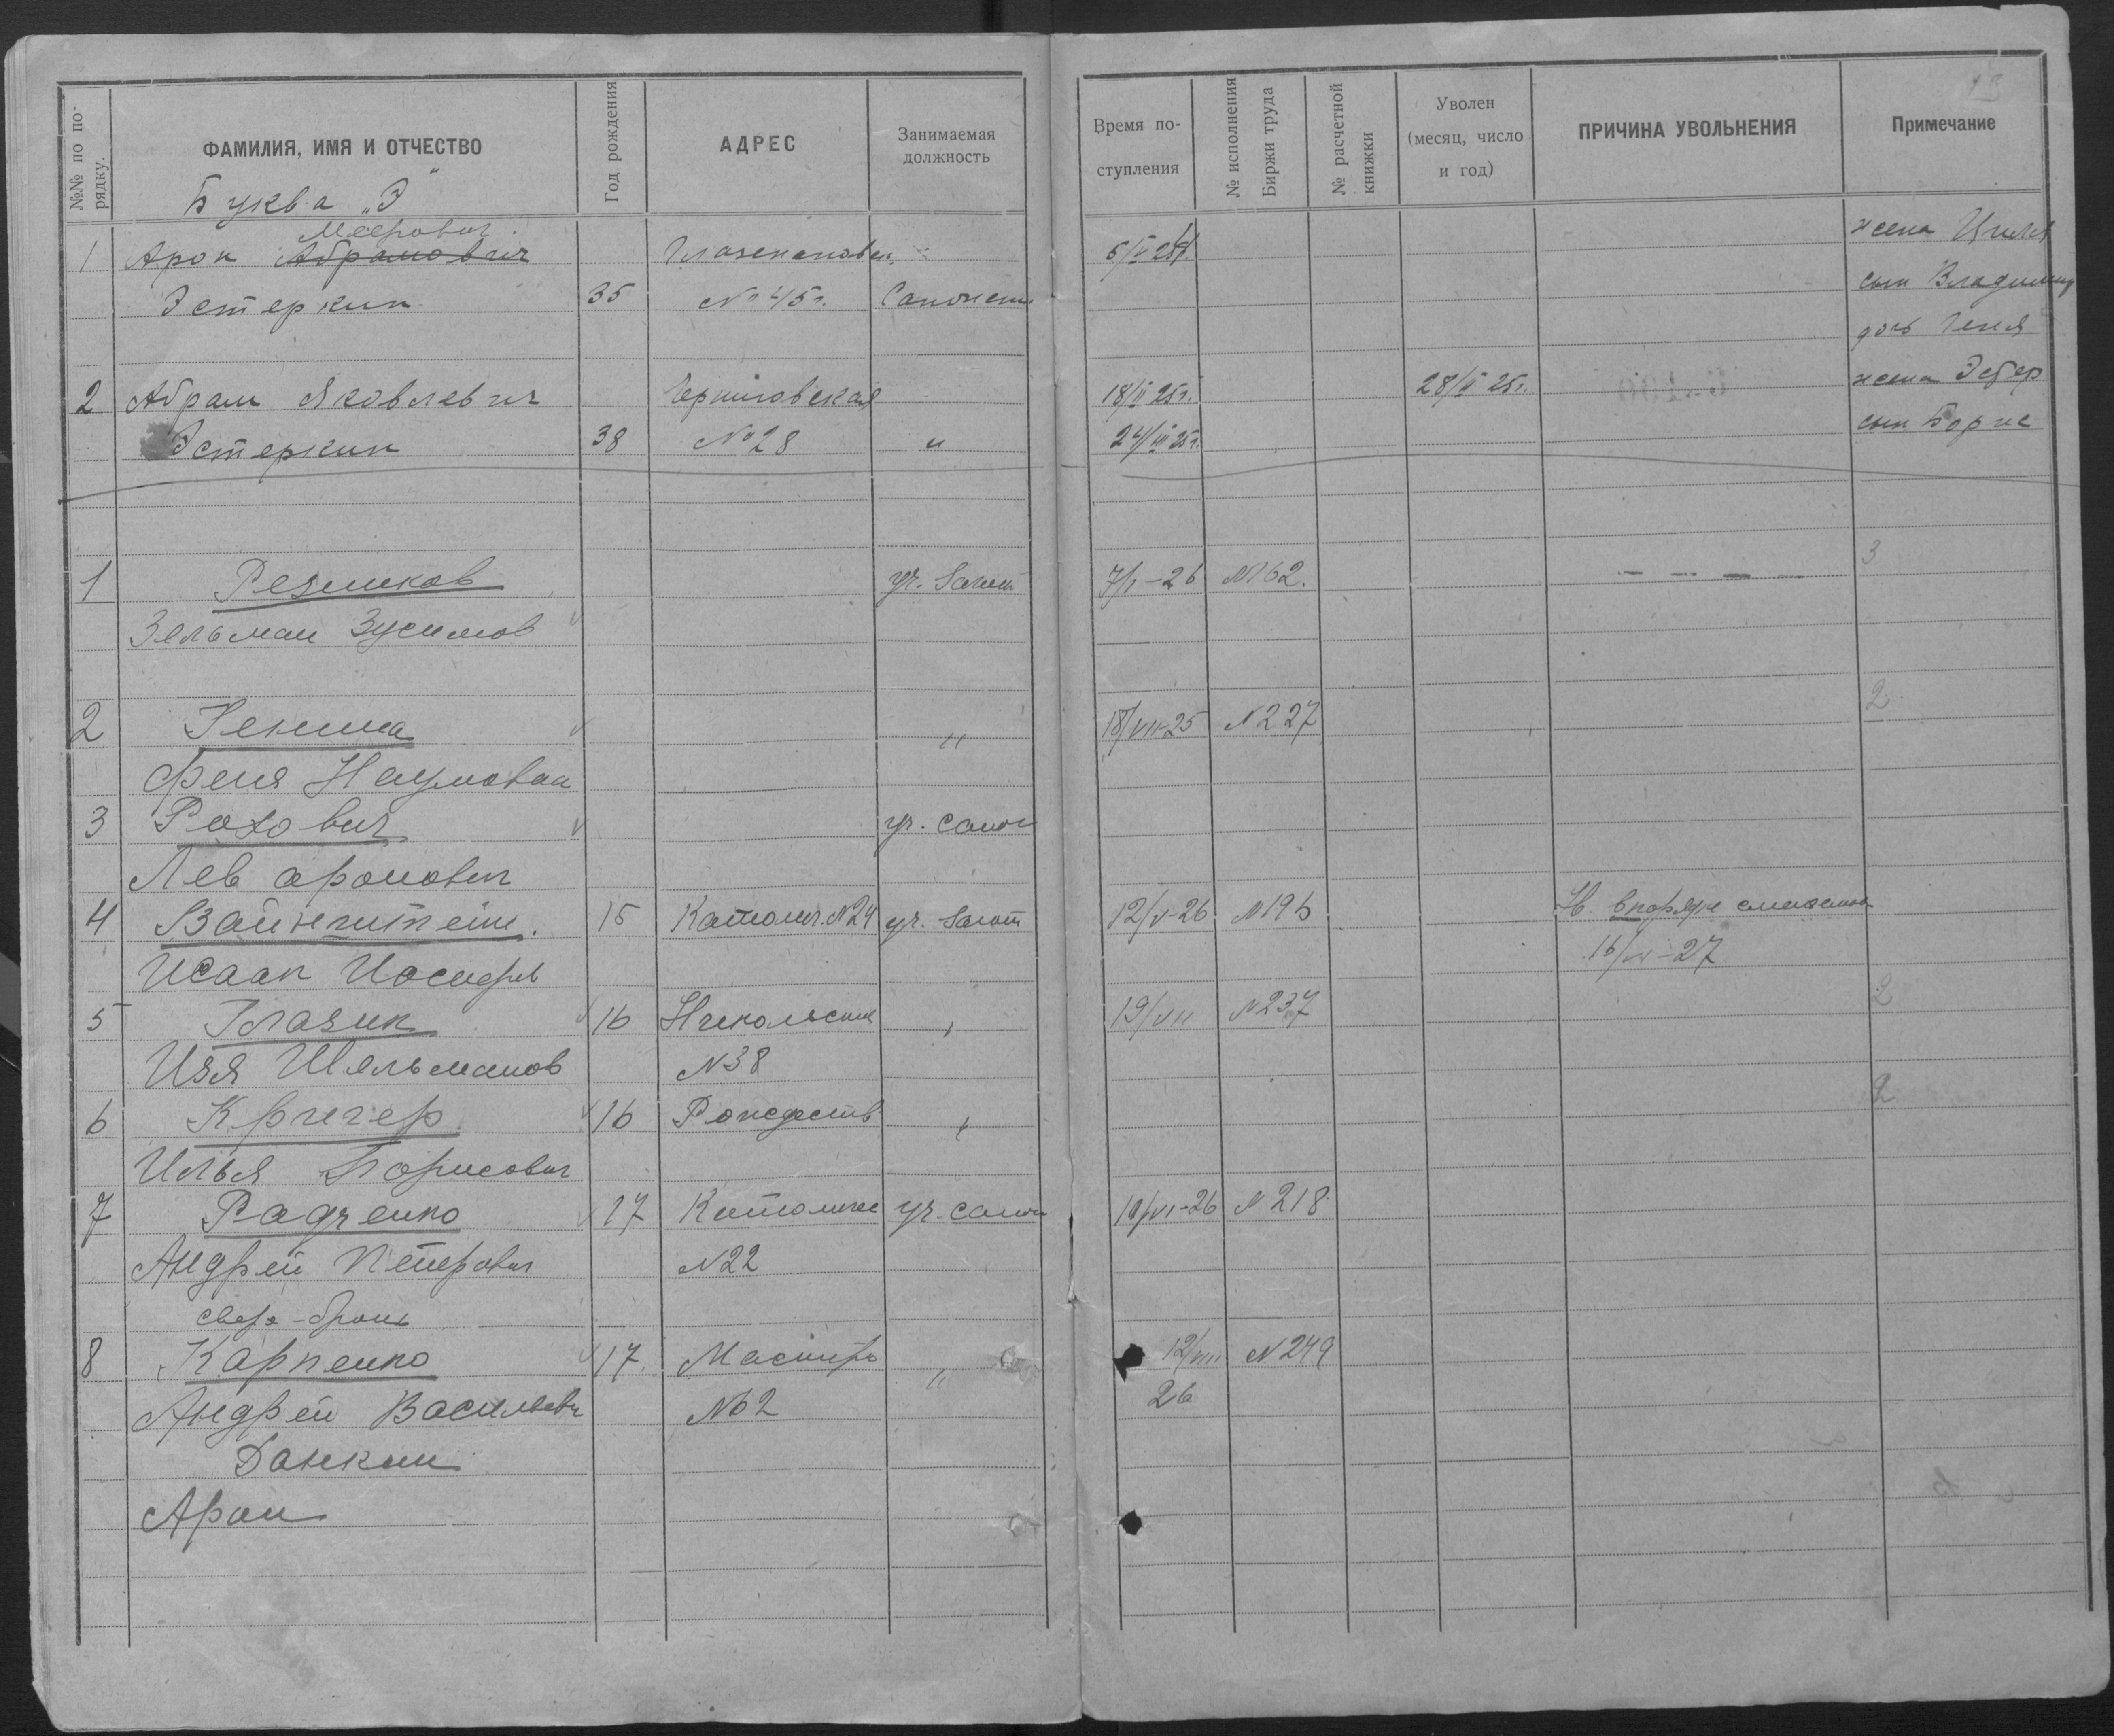 №№ по порядку.
ФАМИЛИЯ, ИМЯ И ОТЧЕСТВО
Год рождения
АДРЕС
Занимаемая должность
Время поступления
№ исполнения Биржи труда
№ расчетной книжки
Уволен (месяц, число и год)
ПРИЧИНА УВОЛЬНЕНИЯ
Примечание
13
Буква „Э"
Меерович
1 Арон Абрамович жена Циля
Эстеркин 35 № 45 г. сын Владимир
дочь Геня
2 Абрам Яковлевич Черниговская 18/II 25 г. 28/II 25 г. жена
Эстеркин 38 № 28 " 24/III 25 г. сын Борис
1 Резников уч. 7/I-26 №162. 3
Зельман Зусимов
2 Генина " 18/VII-25 №227 2
Феня Наумовна
3 уч. сапож
Лев Аронович
4 Вайнштейн. 15 Католич. №24 уч. 12/V-26 №196
Исаак Иосифов
5 Глазик 16 Никольская 19/VII №237 2
Изя Шяльманов №38
6 Кричер 16 Рождеств 2
Илья Борисович
7 Радченко 17 Католичес уч. сапож 19/VI-26 №218
Андрей Петрович №22
сверх-бронь
8 Карпенко 17. " 12/VIII №249
Андрей Васильевич №2 26
Данкин
Арон